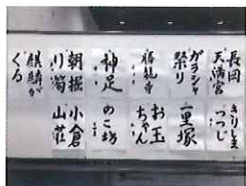 長岡天満宮
きりしまつつじ
ガラシャ祭り
一里塚
勝龍寺
お玉ちゃん
神足
のこ坊
朝掘
小倉山荘
麒麟がくる